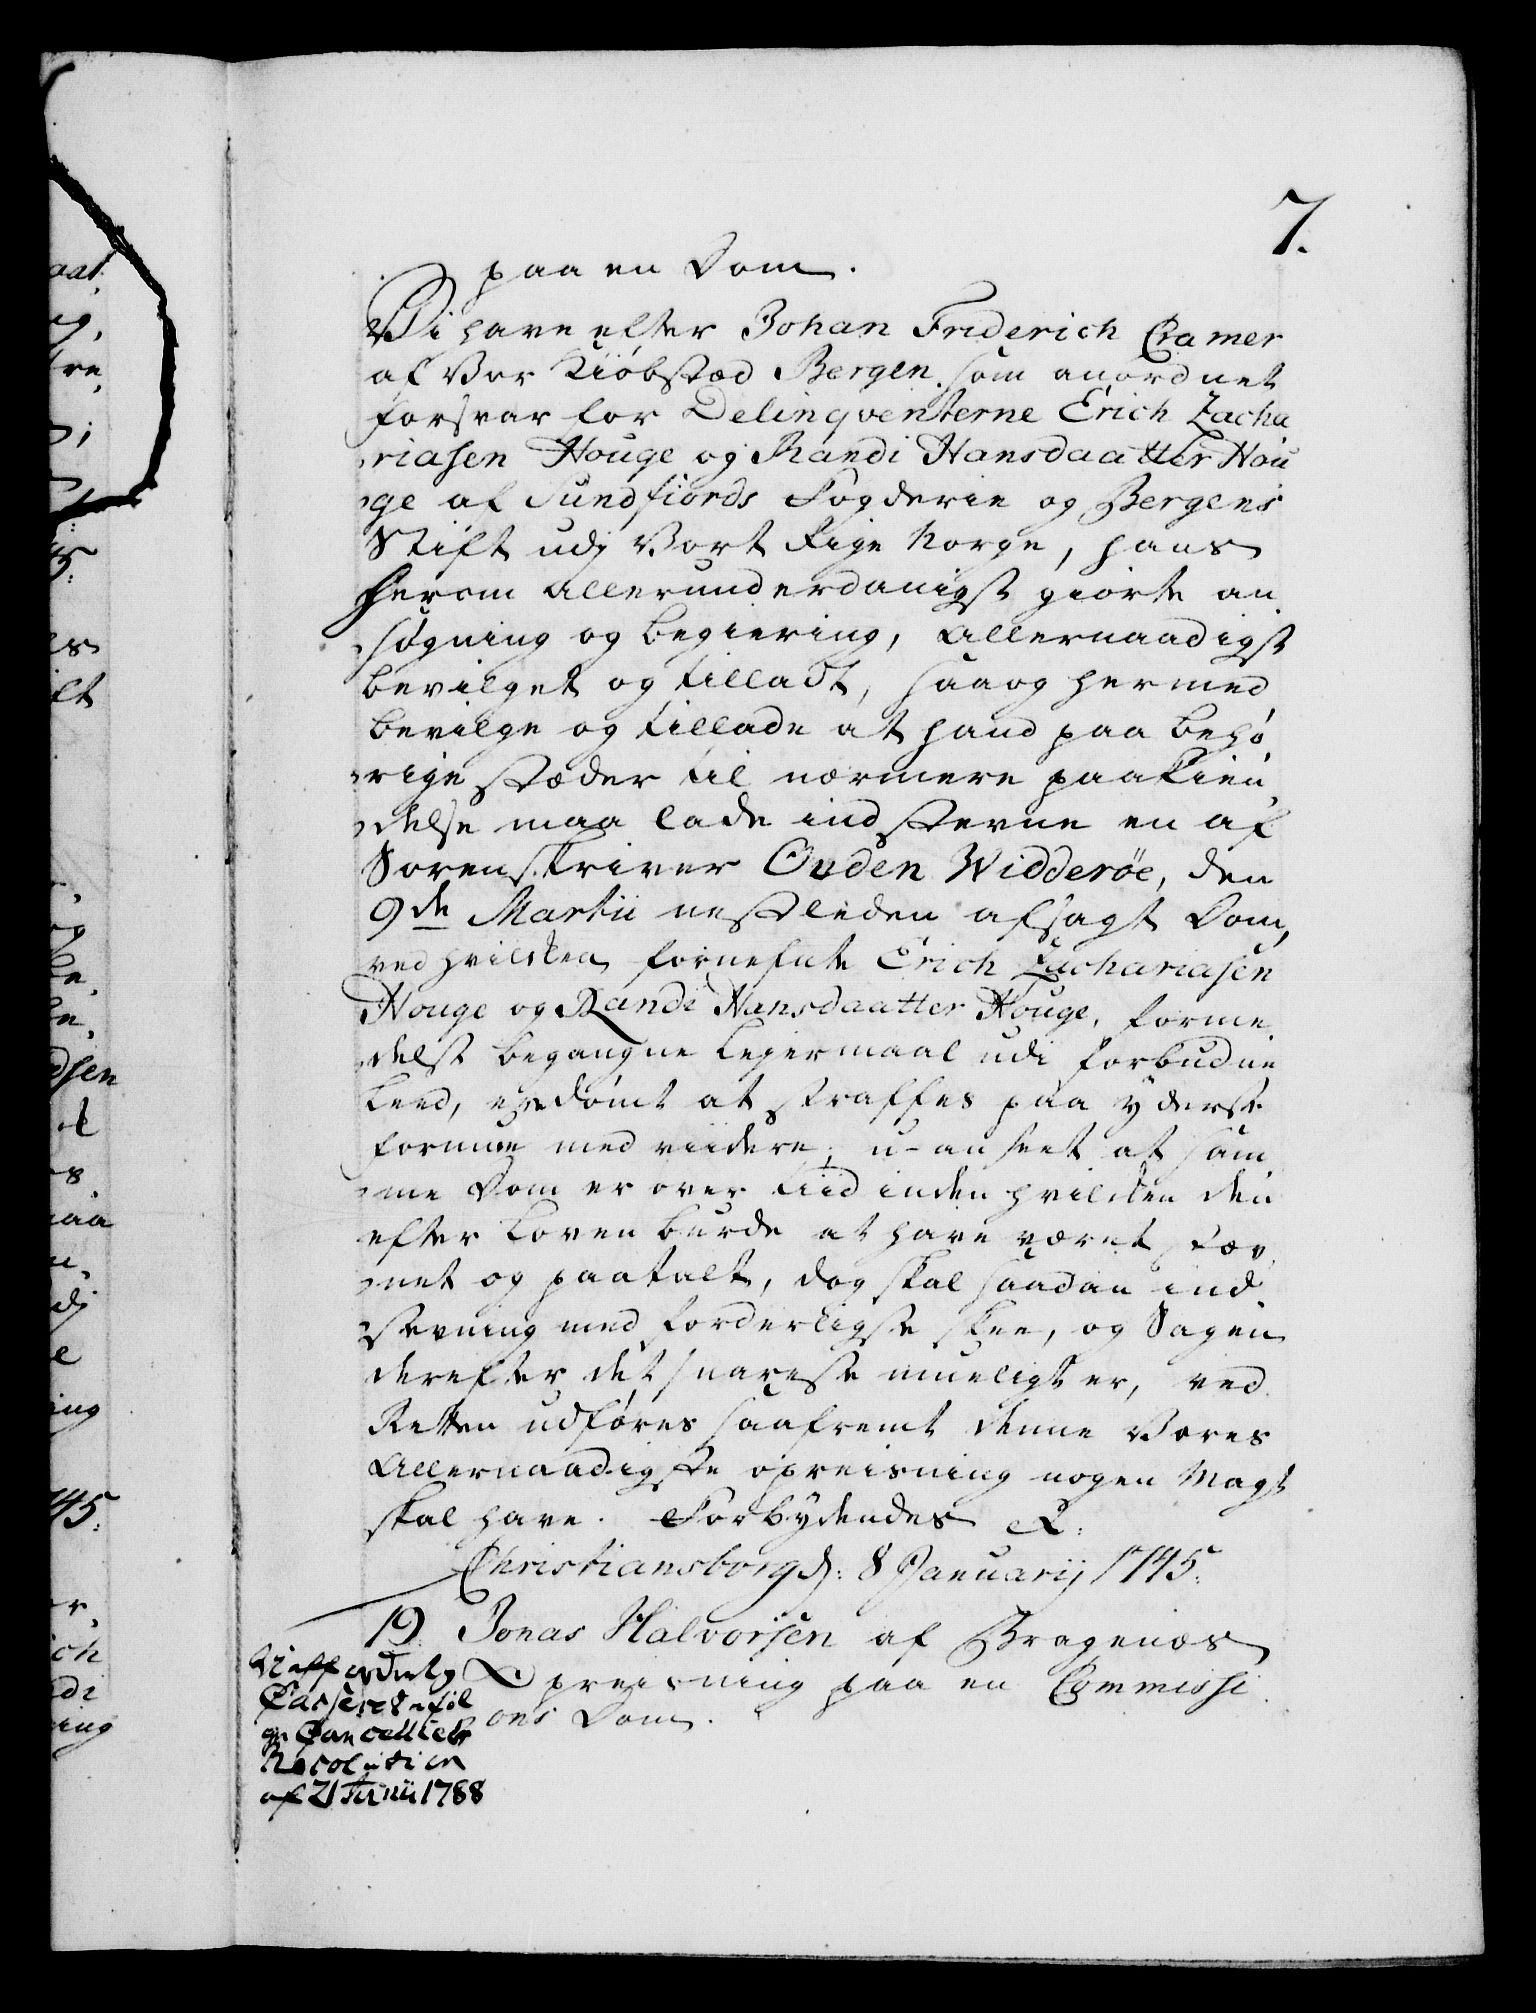 7.
paa en Dom.
Vi have efter Johan Friderich Cramer
af Vor Kiöbstæd Bergen, som anordnet
forsvar for Delinqventerne Erich Zacha
riasen Houge og Randi Hansdaatter Hou
ge af Sundfiords Fogderie og Bergens
Stift udj Vort Rige Norge, hans
herom allerunderdanigst giorte an
søgning og begiering, allernaadigst
bevilget og tilladt, saa og hermed
bevilge og tillade at hand paa behø
rige stæder til nærmere paakien
delse maa lade indstevne en af
Sorenskriver Ouden Widderöe, den
9de Martii nestleden afsagt Dom,
ved hvilken fornefnte Erich Zachariasen
Houge og Randi Hansdaatter Houge, forme
delst begangne Lejermaal udi forbudne
Leed, er dömt at straffes paa yderste
formue med viidere, u-anseet at sam
me Dom er over Tiid inden hvilken den
efter Loven burde at have været stæv
net og paatalt, dog skal saadan ind
stevning med forderligste skee, og Sagen
derefter det snareste mueligt er, ved
Retten udføres saafremt denne Vores
Allernaadigste opreisning nogen Magt
skal have. Forbydendes &:
Christiansborg d: 8 Januarij 1745.
19. Jonas Halvorsen af Bragenæs
Opreisning paa en Commissi
ons Dom.
Casseret efter föl
ge Cancelliets
Resolution
af 21 Junii 1788